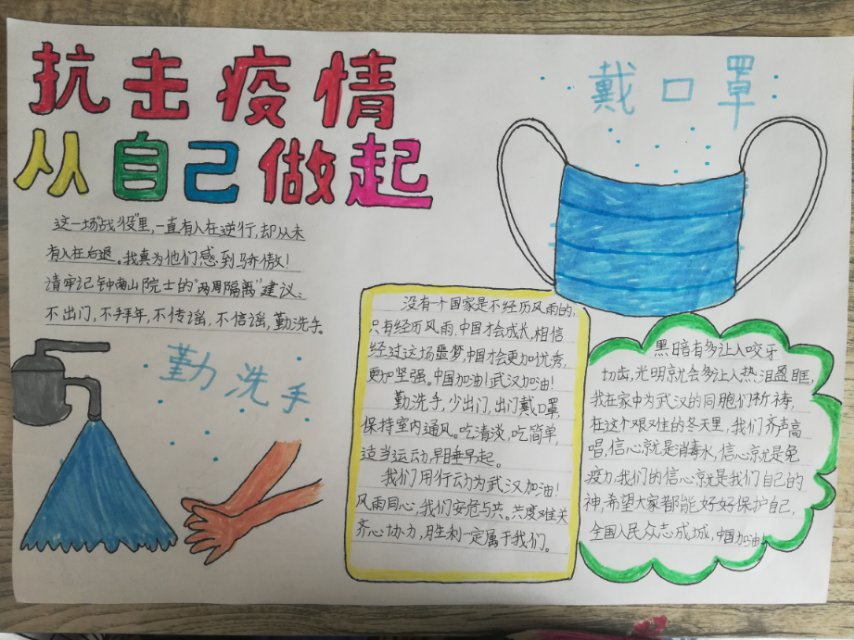 抗击疫情
从自己做起
这一场“战役”里,一直有人在逆行,却从未
有人在后退。我真为他们感到骄傲!
请牢记钟南山院士的“两周隔离”建议:
不出门,不拜年,不传谣,不信谣,勤洗手。
戴口罩
勤洗手
没有一个国家是不经历风雨的,
只有经历风雨,中国才会成长,相信
经过这场噩梦,中国才会更加优秀,
更加坚强。中国加油!武汉加油!
勤洗手,少出门,出门戴口罩,
保持室内通风。吃清淡,吃简单,
适当运动,早睡早起。
我们用行动为武汉加油!
风雨同心,我们安危与共。共度难关
齐心协力,胜利一定属于我们。
黑暗有多让人咬牙
切齿,光明就会多让人热泪盈眶,
我在家中为武汉的同胞们祈祷,
在这个艰难的冬天里,我们齐声高
唱,信心就是消毒水,信心就是免
疫力,我们的信心就是我们自己的
神,希望大家都能好好保护自己,
全国人民众志成城,中国加油!